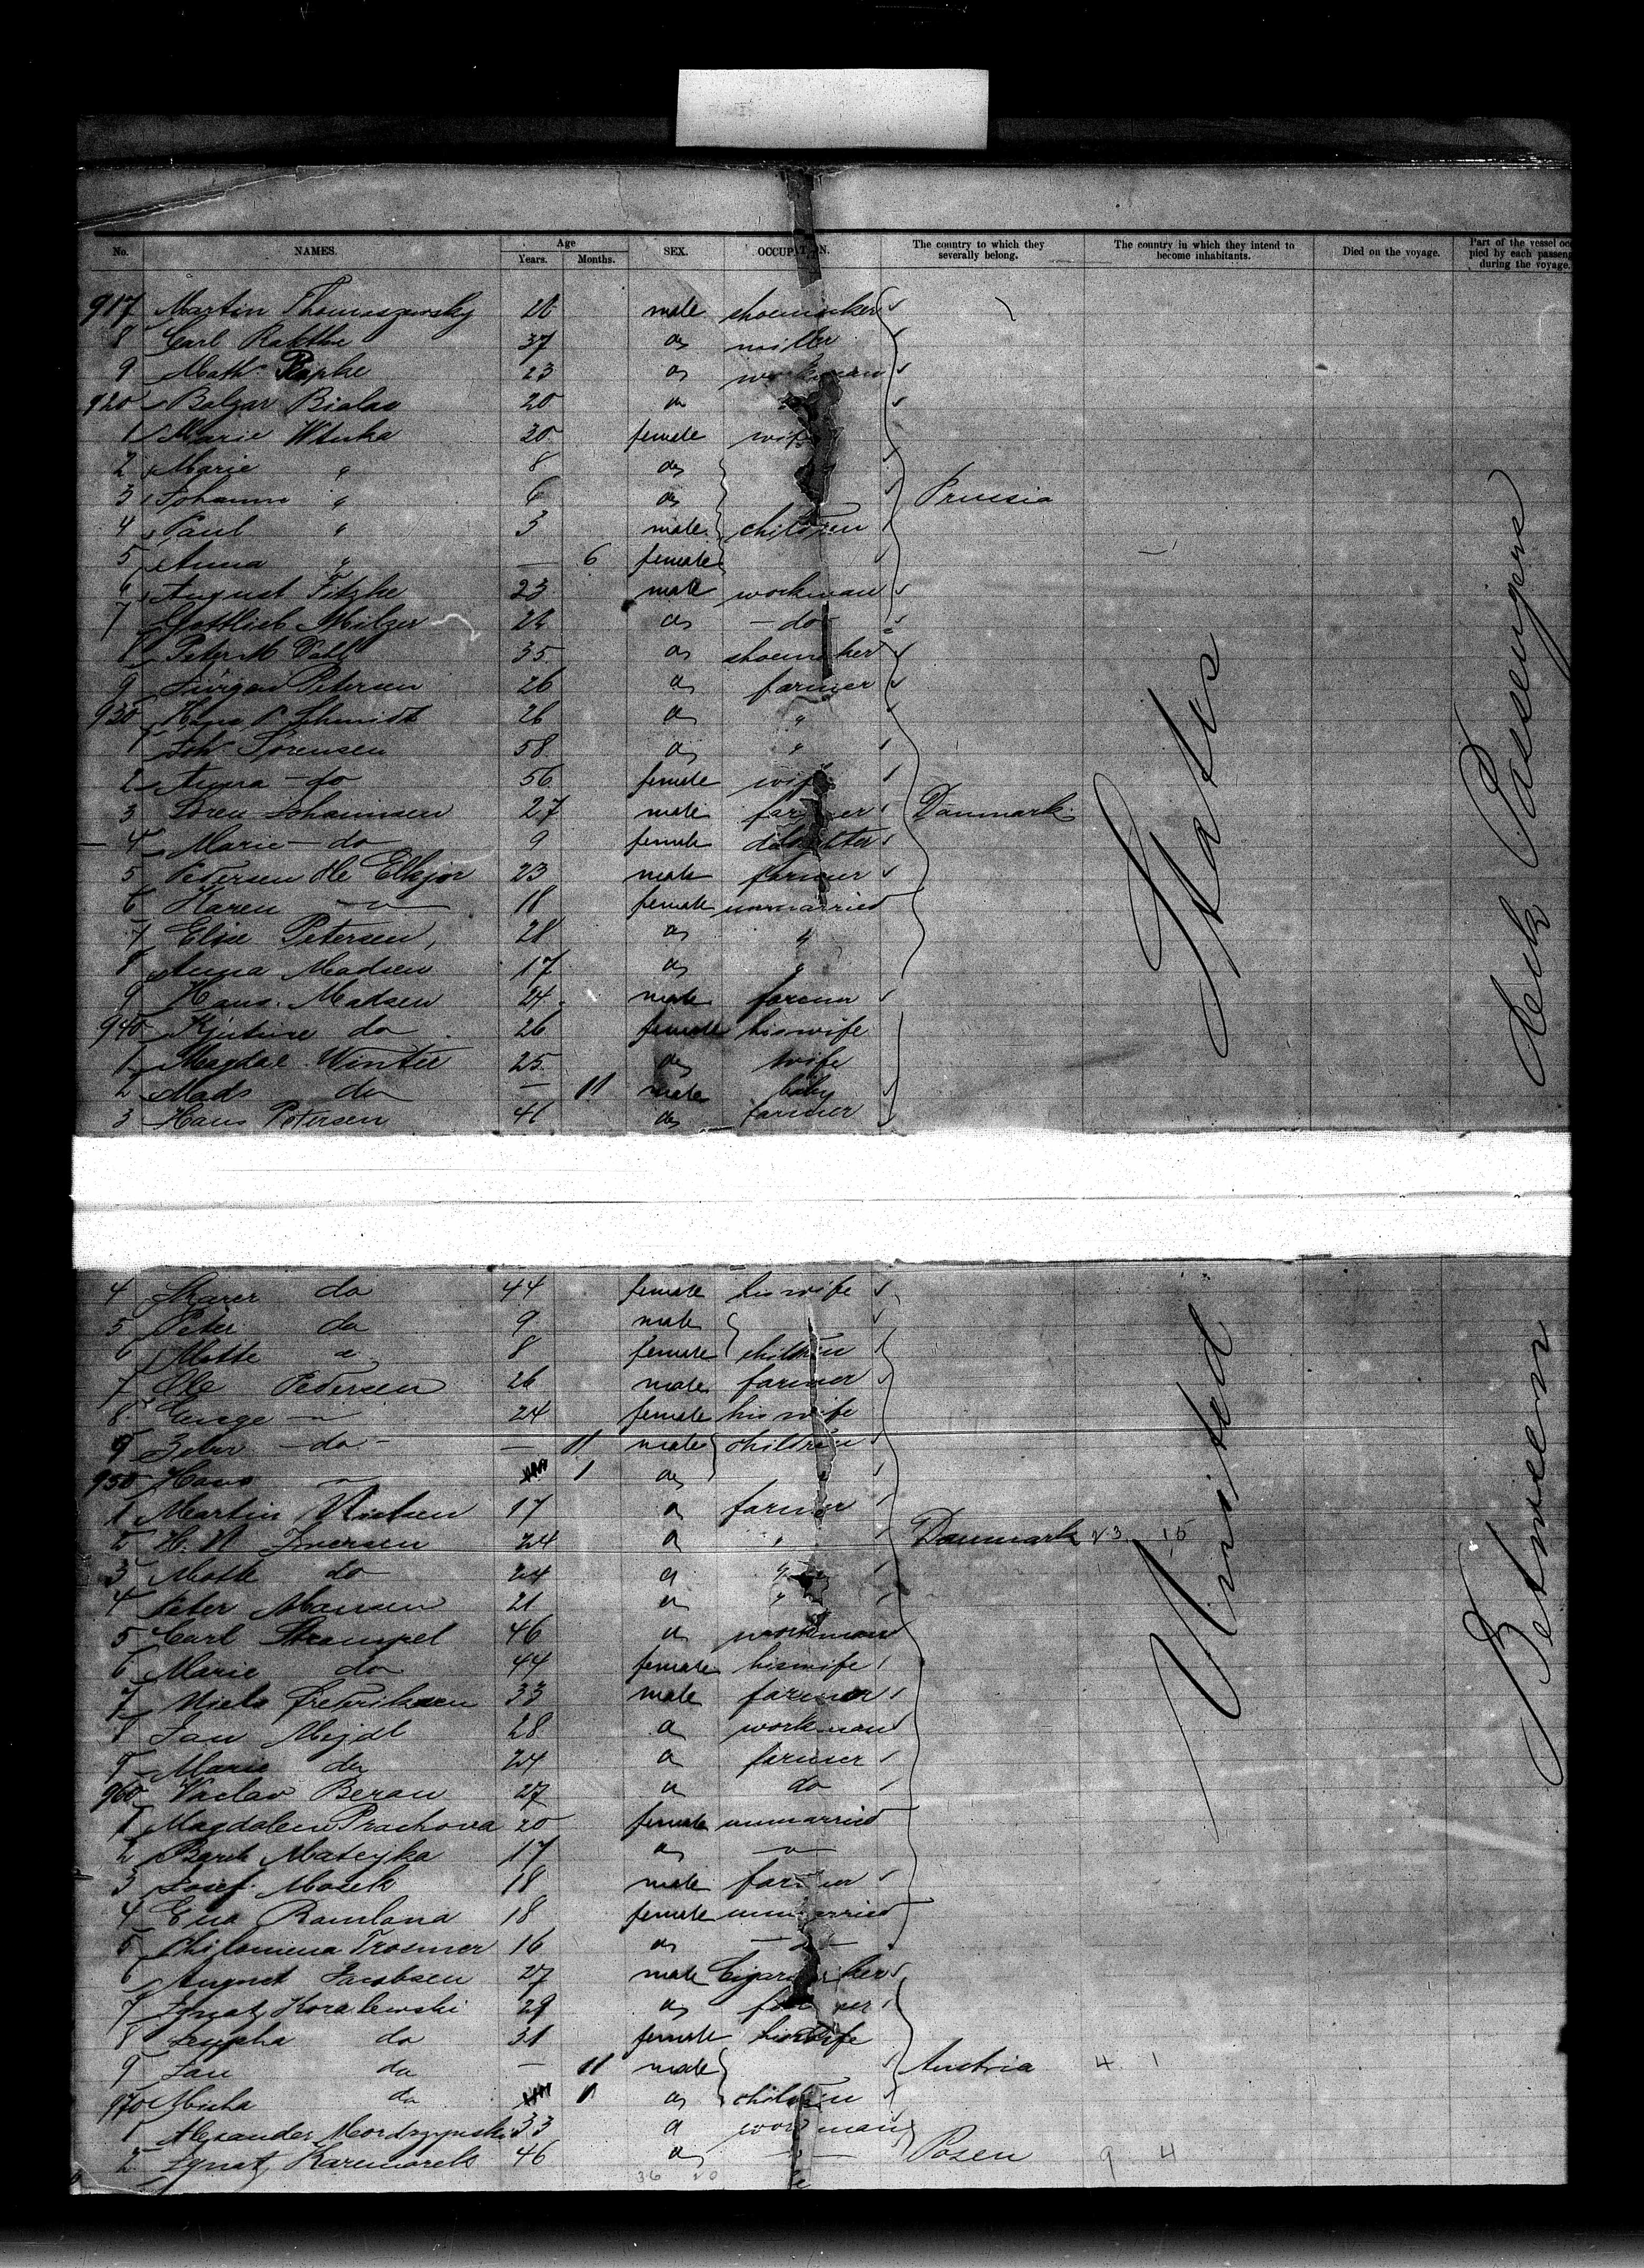 No. NAMES. Age Years. Months. SEX. OCCUPATION. The country to which they severally belong. The country in which they intend to become inhabitants. Died on the voyage. Part of the vessel occupied by each passenger during the voyage.
917 Martin Thomaszewsky 28 male shoemaker
8 Carl Rakthe 37 do miller
9 Math Papke 23 do workman
920 Balzar Bialas 20 do
1 Marie Wtuka 30 female wife
2 Marie " 8 do
3 Johanna " 6 do Prussia
4 Paul " 3 male children
5 Anna " — 6 female
6 August Fitzke 23 male workman
7 Gottlieb Milzer 28 do - do -
8 Peter M Dall 35 do shoemaker
9 Jürgen Petersen 26 do farmer
930 Hans P Schmidt 26 do "
1 Joh Sorensen 58 do "
2 Anna - do 56 female wife
3 Soren Johannsen 27 male farmer Danmark
4 Marie - do 9 female daughter
5 Pedersen Ole Elkjor 23 male farmer
6 Karen - " - 18 female unmarried
7 Elise Petersen, 28 do "
8 Anna Madsen 17 do "
9 Hans Madsen 24 male farmer
940 do 26 female his wife
1 Magdal. Winter 25 do wife
2 Mads do — 11 male baby
3 Hans Petersen 41 do farmer
4 Karen do 44 female his wife
5 Peter do 9 male
6 Mette do 8 female children
7 Ole Pedersen 26 male farmer
8 Genge - " 24 female his wife
9 Peter - do - — 11 male children
950 Hans " 1 do
1 Martin Nielsen 17 do farmer
2 H. N Iversen 24 do " Danmark 23 15
3 Mette do 24 do "
4 Peter Mansen 21 do "
5 Carl Strampel 46 do workman
6 Marie do 44 female his wife
7 Niels Fredriksen 33 male farmer
8 Jan Mejdl 28 do workman
9 Marie do 24 do farmer
960 Vaclav Beran 27 do do
1 Magdalena Prachova 20 female unmarried
2 Barb Matejka 17 do - " -
3 Josef Masek 18 male farmer
4 Eva Ramlana 18 female unmarried
5 Philomena Trosmer 16 do
6 August Jacobsen 27 male Cigarmaker
7 Ignatz Koralewski 29 do farmer
8 Josepha do 31 female his wife
9 Jan do — 11 male Austria 4 1
970 Micha do 11 do children
1 Alexander Mordrzynski 33 do workman
2 Ignatz Karemarek 46 do — " — Posen 9 4
36 20
United States
Between deck Passengers